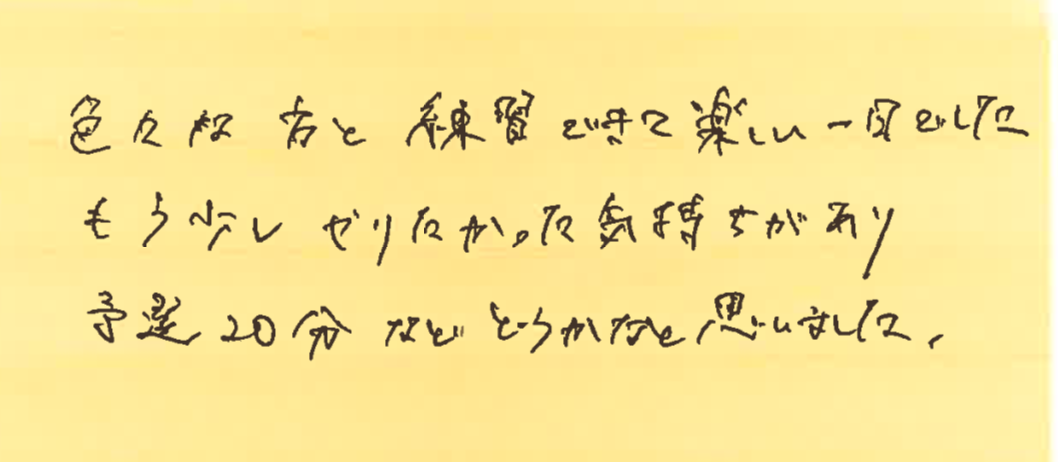 色々な方と練習できて楽しい一日でした
もう少しやりたかった気持ちがあり
予選20分などどうかなと思いました。